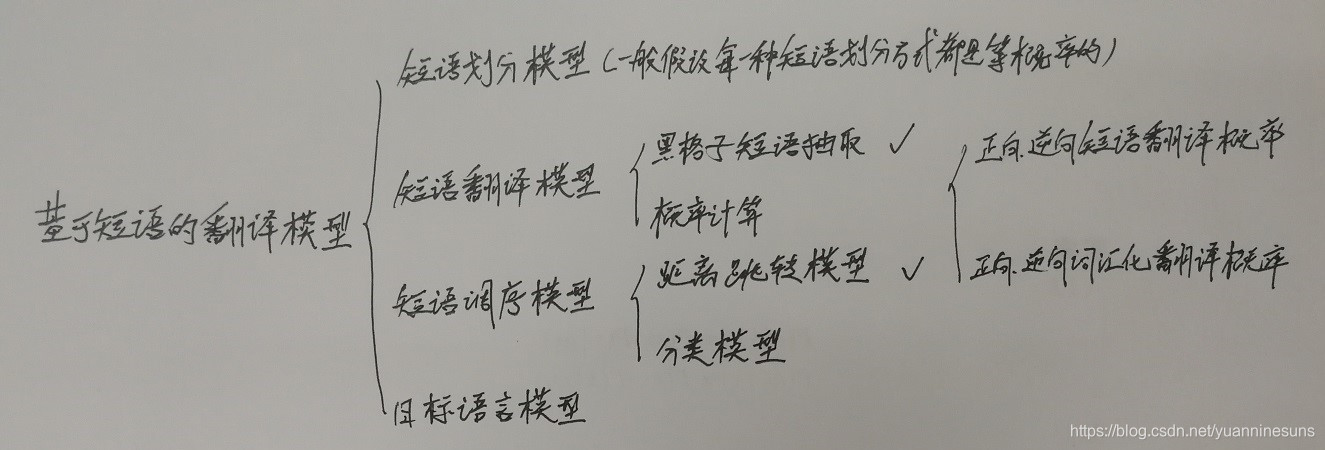 短语划分模型（一般假设每一种短语划分方式都是等概率的）
黑格子短语抽取 ✓
正向、逆向短语翻译概率
短语翻译模型
概率计算
基于短语的翻译模型
距离跳转模型 ✓
正向、逆向词汇化翻译概率
短语调序模型
分类模型
目标语言模型
https://blog.csdn.net/yuanninesuns